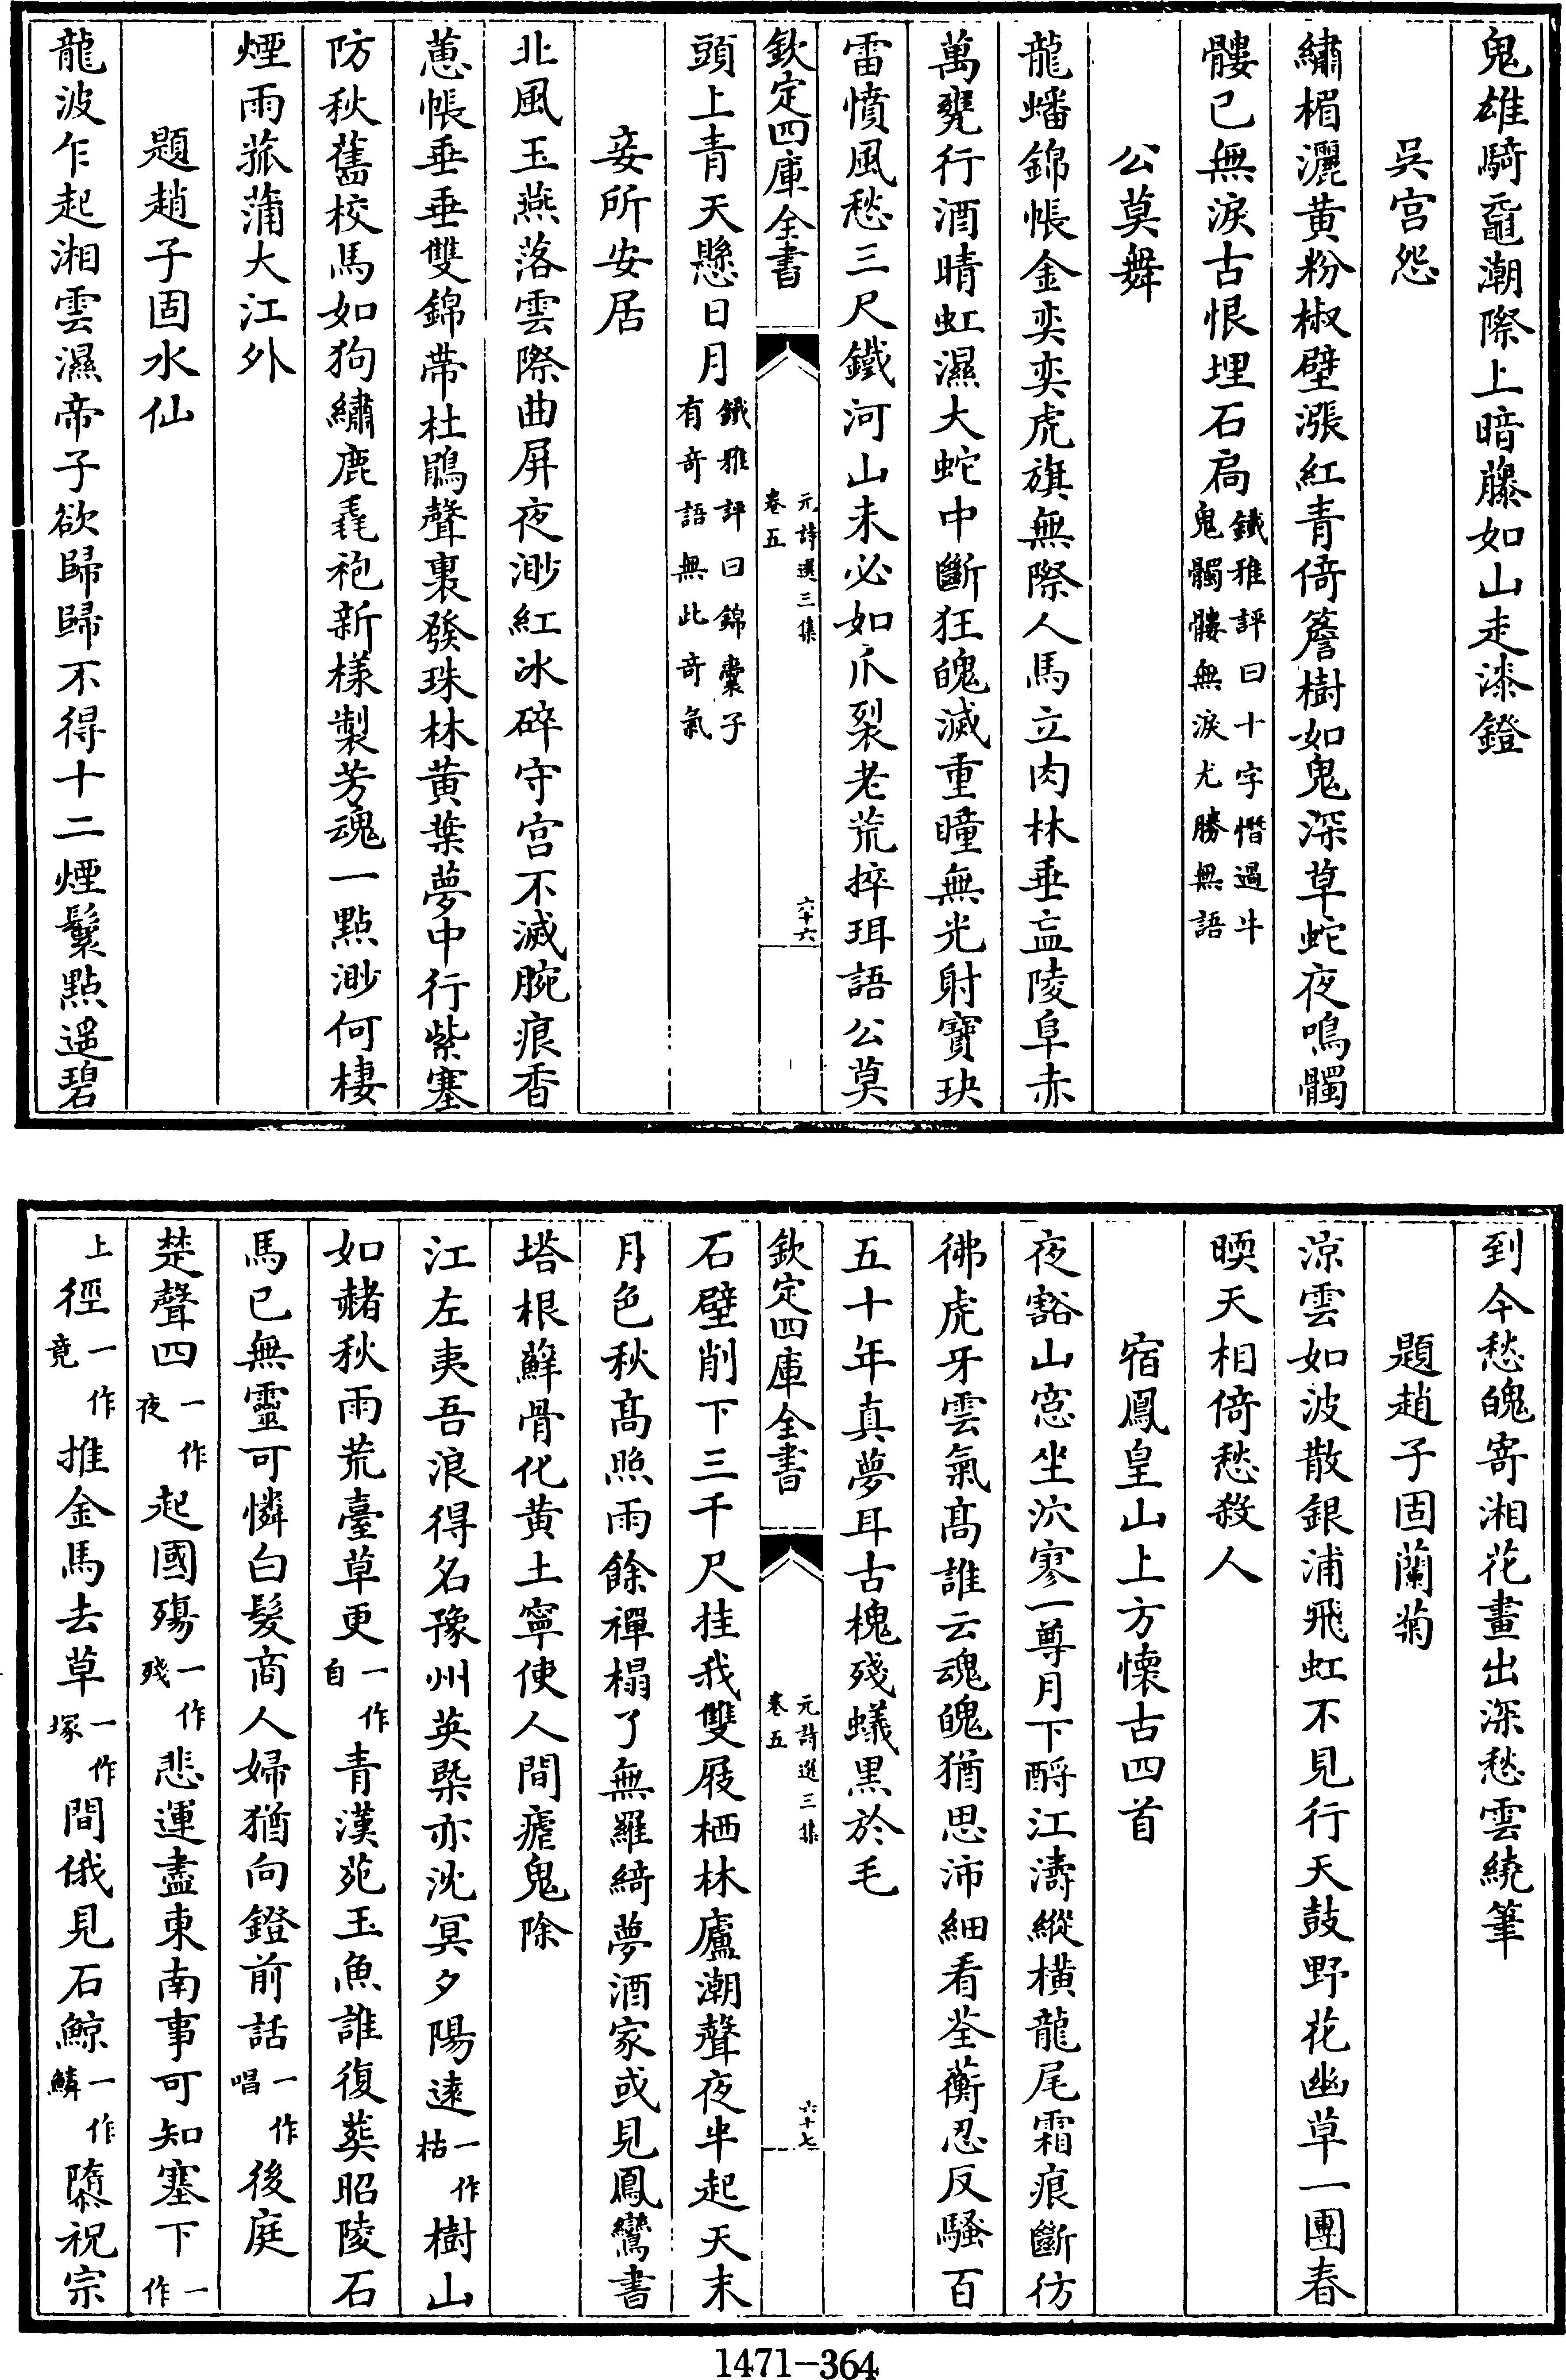 鬼雄騎黿潮際上暗藤如山走漆鐙
吳宫怨
繡楣灑黄粉椒壁漲紅青倚簷樹如鬼深草蛇夜鳴髑
髏已無淚古恨埋石扃鐵雅評曰十字慴過牛鬼髑髏無淚尤勝無語
公莫舞
龍蟠錦帳金奕奕虎旗無際人馬立肉林垂盇陵阜赤
萬甕行酒晴虹濕大蛇中斷狂魄滅重瞳無光射寶玦
雷憤風愁三尺鐵河山未必如爪裂老荒捽珥語公莫
欽定四庫全書
元詩選三集
卷五
六十六
頭上青天懸日月鐵雅評曰錦囊子有奇語無此奇氣
妾所安居
北風玉燕落雲際曲屏夜渺紅冰碎守宫不滅腕痕香
蕙帳垂垂雙錦帶杜鵑聲裏發珠林黄葉夢中行紫塞
防秋舊校馬如狗繡鹿毳袍新様製芳魂一點渺何棲
煙雨菰蒲大江外
題趙子固水仙
龍波乍起湘雲濕帝子欲歸歸不得十二煙鬟點遥碧
到今愁魄寄湘花畫出深愁雲繞筆
題趙子固蘭菊
涼雲如波散銀浦飛虹不見行天鼓野花幽草一團春
暝天相倚愁殺人
宿鳳皇山上方懷古四首
夜豁山窓坐泬寥一尊月下酹江濤縱横龍尾霜痕斷彷
彿虎牙雲氣髙誰云魂魄猶思沛細看荃蘅忍反騷百
五十年真夢耳古槐殘蟻黒於毛
欽定四庫全書
元詩選三集
卷五
六十七
石壁削下三千尺挂我雙屐栖林廬潮聲夜半起天末
月色秋髙照雨餘禪榻了無羅綺夢酒家或見鳳鸞書
塔根蘚骨化黄土寧使人間瘧鬼除
江左夷吾浪得名豫州英槩亦沈冥夕陽逺一作枯樹山
如赭秋雨荒臺草更一作自青漢苑玉魚誰復葬昭陵石
馬已無靈可憐白髮商人婦猶向鐙前話一作唱後庭
楚聲四一作夜起國殤一作殘悲運盡東南事可知塞下一作
上徑一作竟推金馬去草一作塚間俄見石鯨一作鱗隳祝宗
1471-364